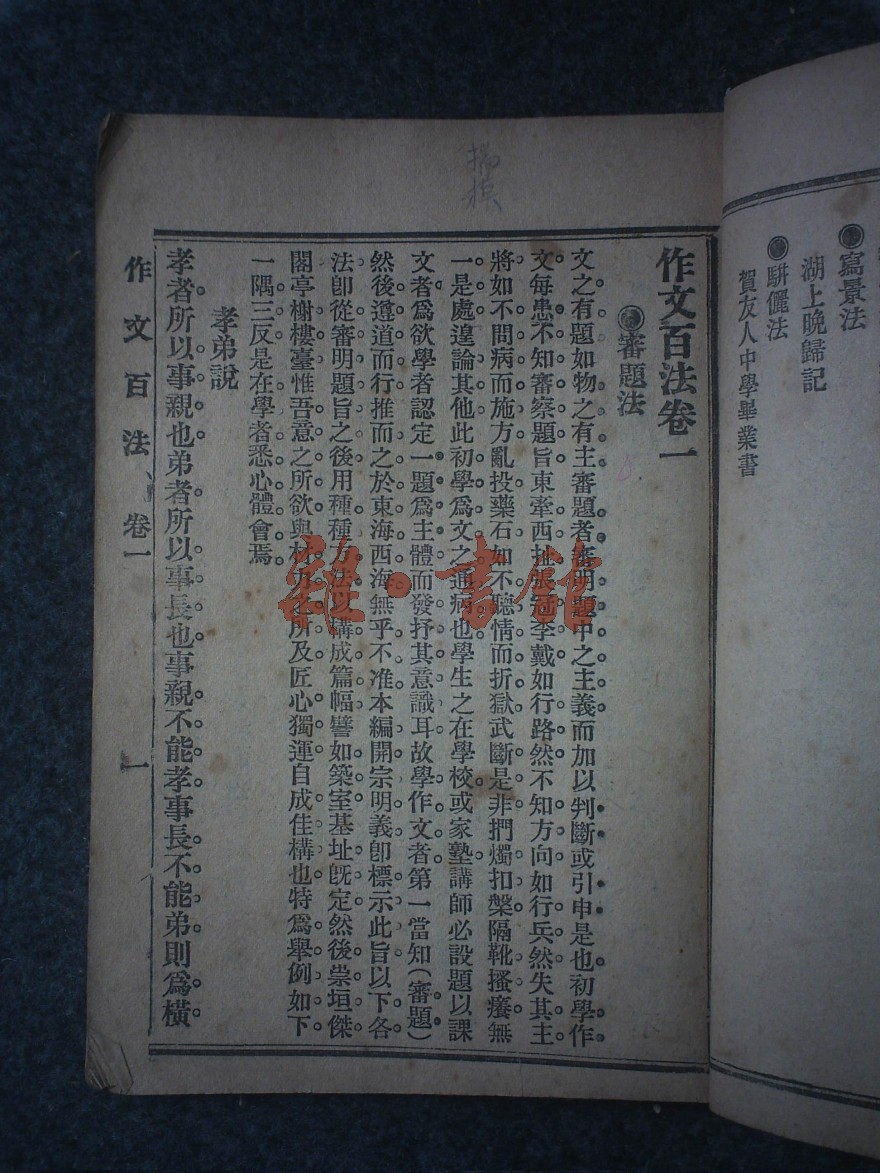 寫景法
湖上晚歸記
駢儷法
賀友人中學畢業書
作文百法卷一
審題法
文之有題如物之有主審題者審明題中之主義而加以判斷或引申是也初學作
文每患不知審察題旨東牽西扯張冠李戴如行路然不知方向如行兵然失其主
將如不問病而施方亂投藥石如不聽情而折獄武斷是非捫燭扣槃隔靴搔癢無
一是處遑論其他此初學爲文之通病也學生之在學校或家塾講師必設題以課
文者爲欲學者認定一題爲主體而發抒其意識耳故學作文者第一當知(審題)
然後遵道而行推而之於東海西海無乎不准本編開宗明義卽標示此旨以下各
法卽從審明題旨之後用種種方法以構成篇幅譬如築室基址旣定然後崇垣傑
閣亭榭樓臺惟吾意之所欲與材力之所及匠心獨運自成佳構也特爲舉例如下
一隅三反是在學者悉心體會焉
孝弟說
孝者所以事親也弟者所以事長也事親不能孝事長不能弟則爲橫
作文百法 卷一 一
雜·書館